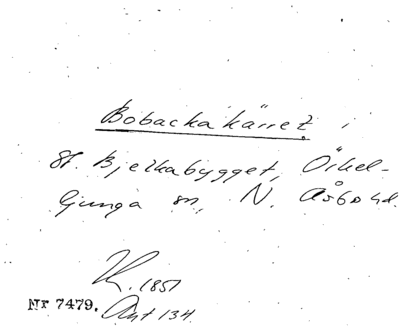 Bobackakärret i
St. Bjelkabygget, Örkel-
ljunga sn, N. Åsbo hd.
K. 1851
Nr 7479. Akt 134